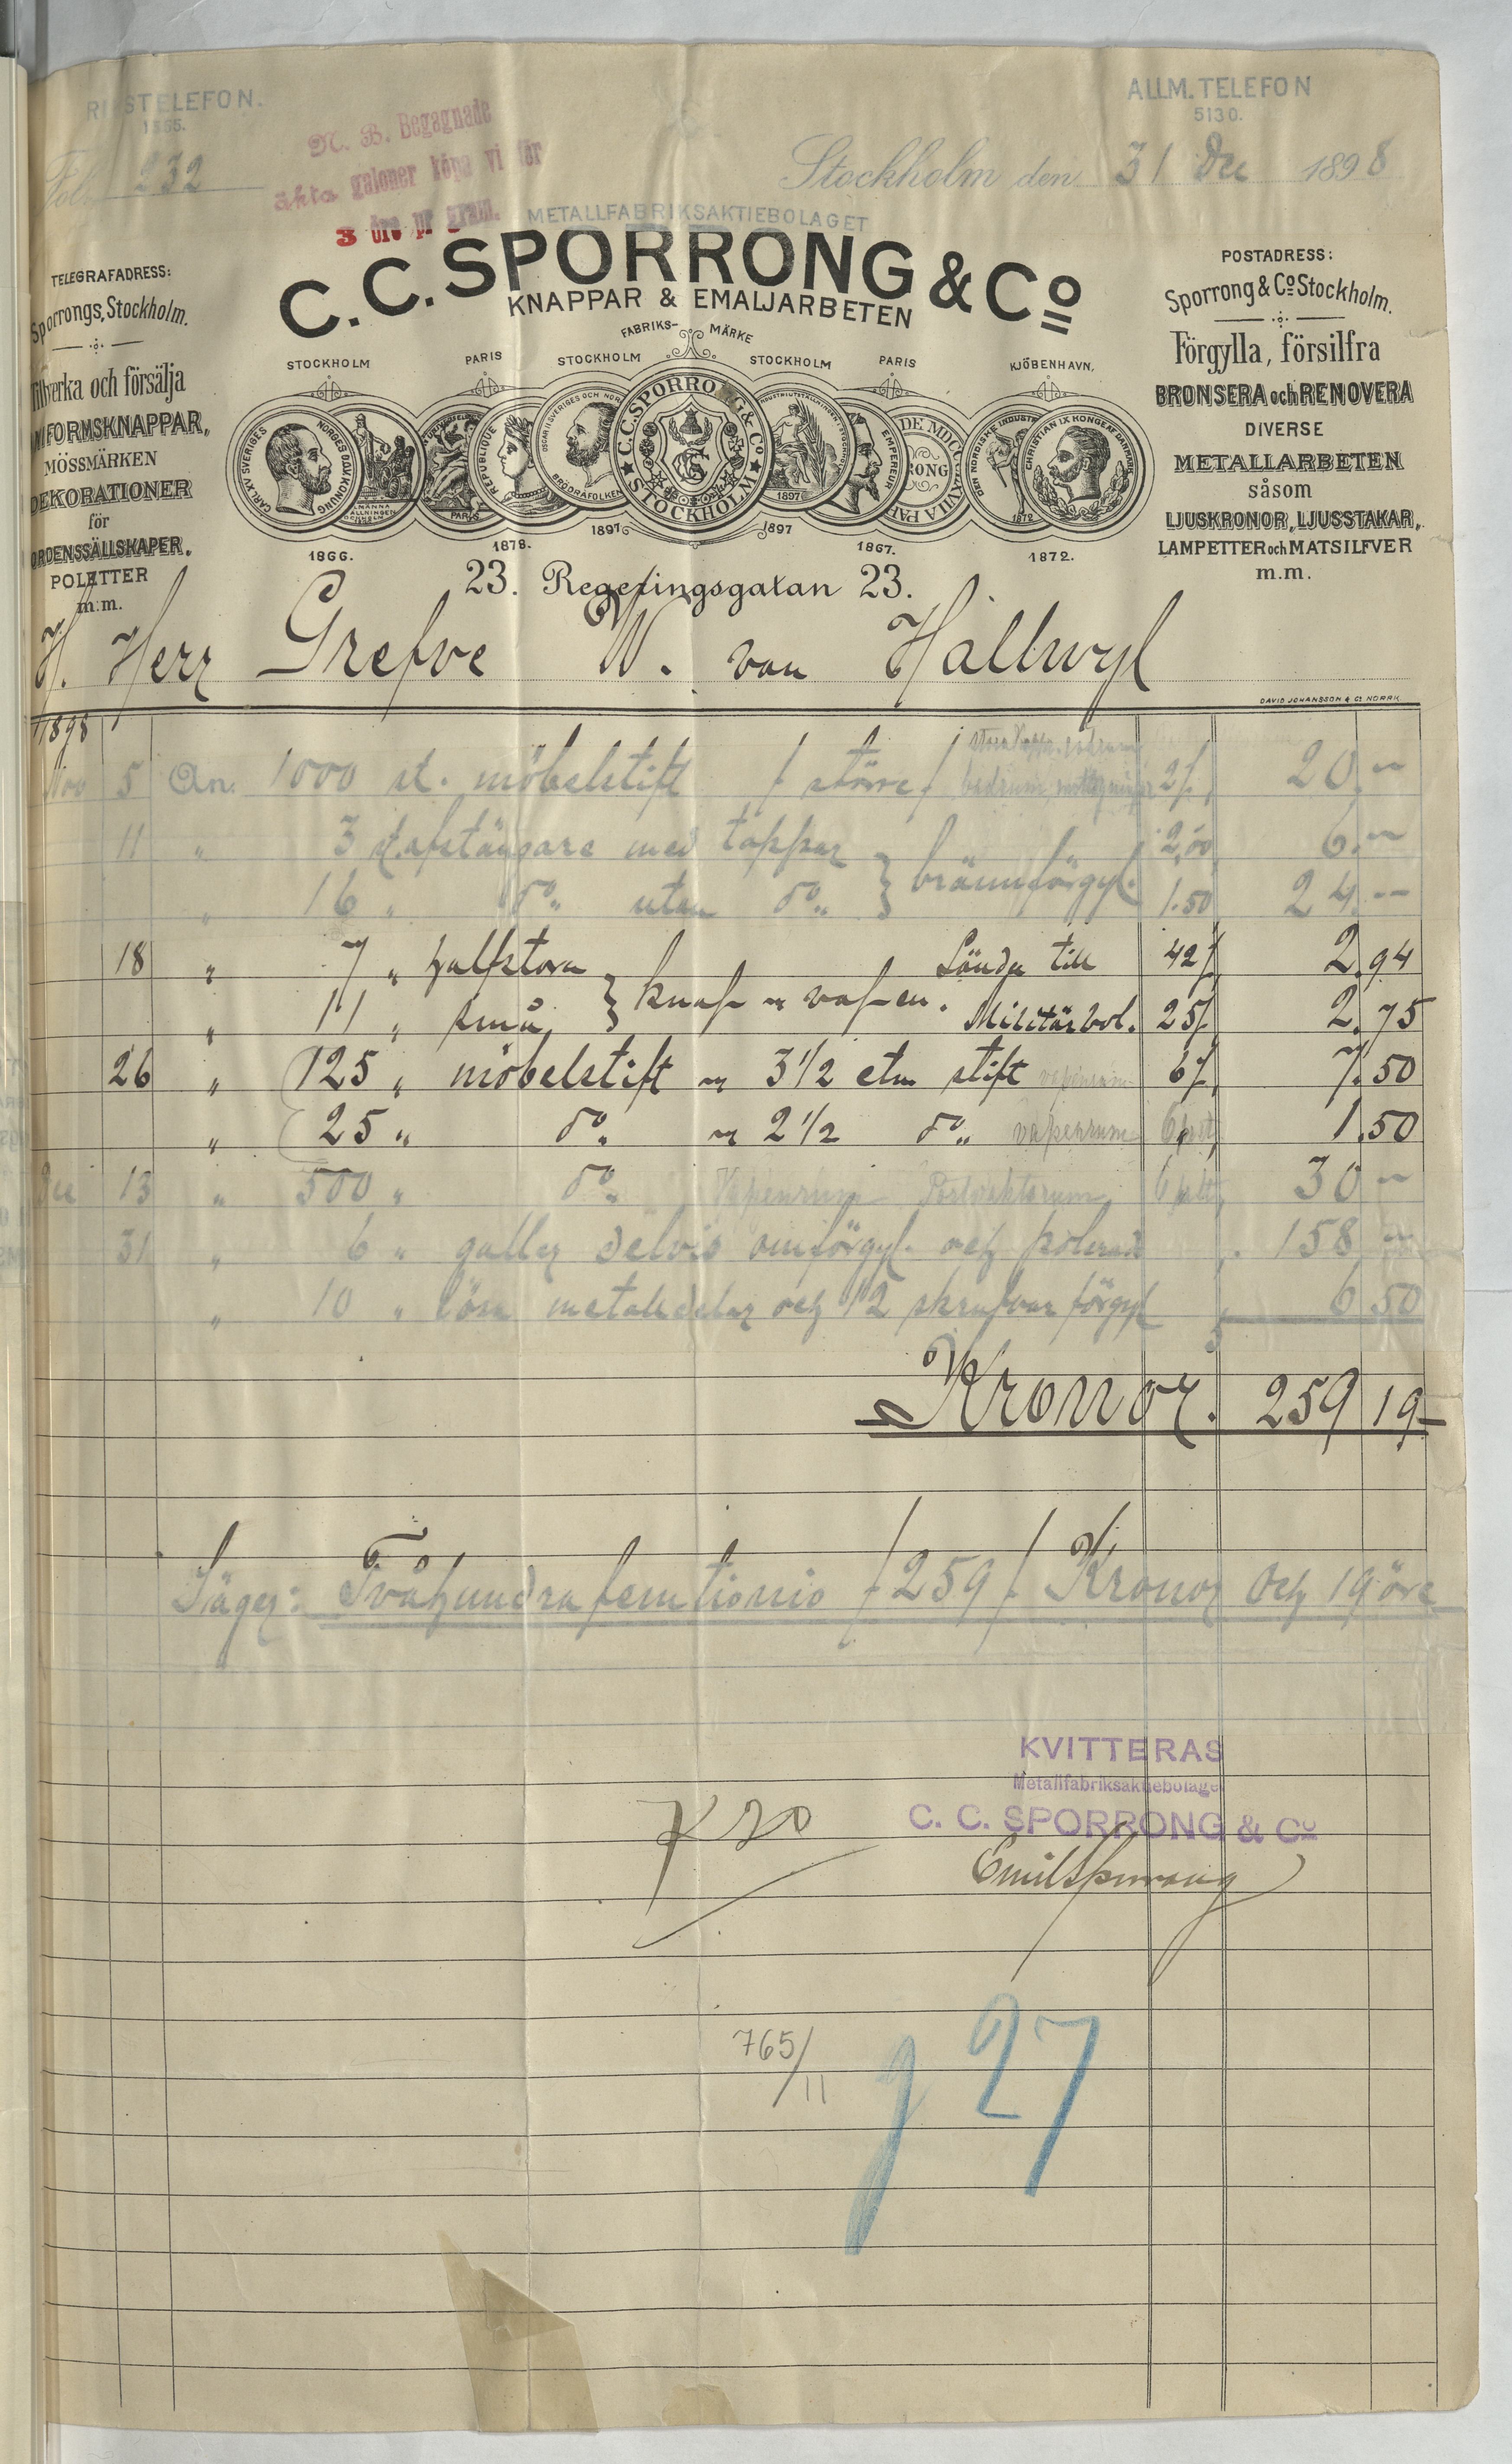 RIKSTELEFON.
1555.
ALLM. TELEFON
5130.
N. B. Begagnade
äkta galoner köpa vi för
3 öre pr gram.
Fol. 232
Stockholm den 31 Dec 1898
METALLFABRIKSAKTIEBOLAGET
C. C. SPORRONG & Co
KNAPPAR & EMALJARBETEN
FABRIKS-MÄRKE
TELEGRAFADRESS:
Sporrongs, Stockholm.
Tillverka och försälja
UNIFORMSKNAPPAR,
MÖSSMÄRKEN
DEKORATIONER
för
ORDENSSÄLLSKAPER.
POLETTER
m.m.
POSTADRESS:
Sporrong & Co Stockholm.
Förgylla, försilfra
BRONSERA och RENOVERA
DIVERSE
METALLARBETEN
såsom
LJUSKRONOR, LJUSSTAKAR,
LAMPETTER och MATSILFVER
m.m.
STOCKHOLM PARIS STOCKHOLM STOCKHOLM PARIS KJÖBENHAVN.
CARL XV SVERIGES NORGES KONUNG
PARIS
REPUBLIQUE
BRÖDRAFOLKEN
C.C. SPORRONG & Co
STOCKHOLM
1897
EMPEREUR
DEN NORDISKE INDUSTRI
1872
CHRISTIAN IX KONGE AF DANMARK
1866. 1878. 1897 1897 1867. 1872.
23. Regeringsgatan 23.
H. Herr Grefve W. von Hallwyl
DAVID JOHANSSON & Co NORRK.
1898
Nov 5 An. 1000 st. möbelstift / större / 2/ 20.–
11 " 3 st. afstängare med tappar 2,00 6.–
" 16 " do. utan do. } brännförgyl. 1.50 24.–
18 " 7 " halfstora Sända till 42/ 2.94
" 11 " små } knap m vapen. Militärbol. 25/ 2.75
26 " 125 " möbelstift m 3 1/2 ctm stift vapenrum 6/ 7.50
" 25 " do. m 2 1/2 do. vapenrum 6 1.50
Dec 13 " 500 " do. Vapenrum 6 30 –
31 " 6 " galler delvis omförgyl. och polerad 158 –
" 10 " lösa metalldelar och 12 skrufvar förgyl 6 50
Kronor. 259 19
Säger: Tvåhundrafemtionio / 259 / Kronor och 19 öre
KVITTERAS
Metallfabriksaktiebolaget
C. C. SPORRONG & Co
Emil Sporrong
765/11
g 27